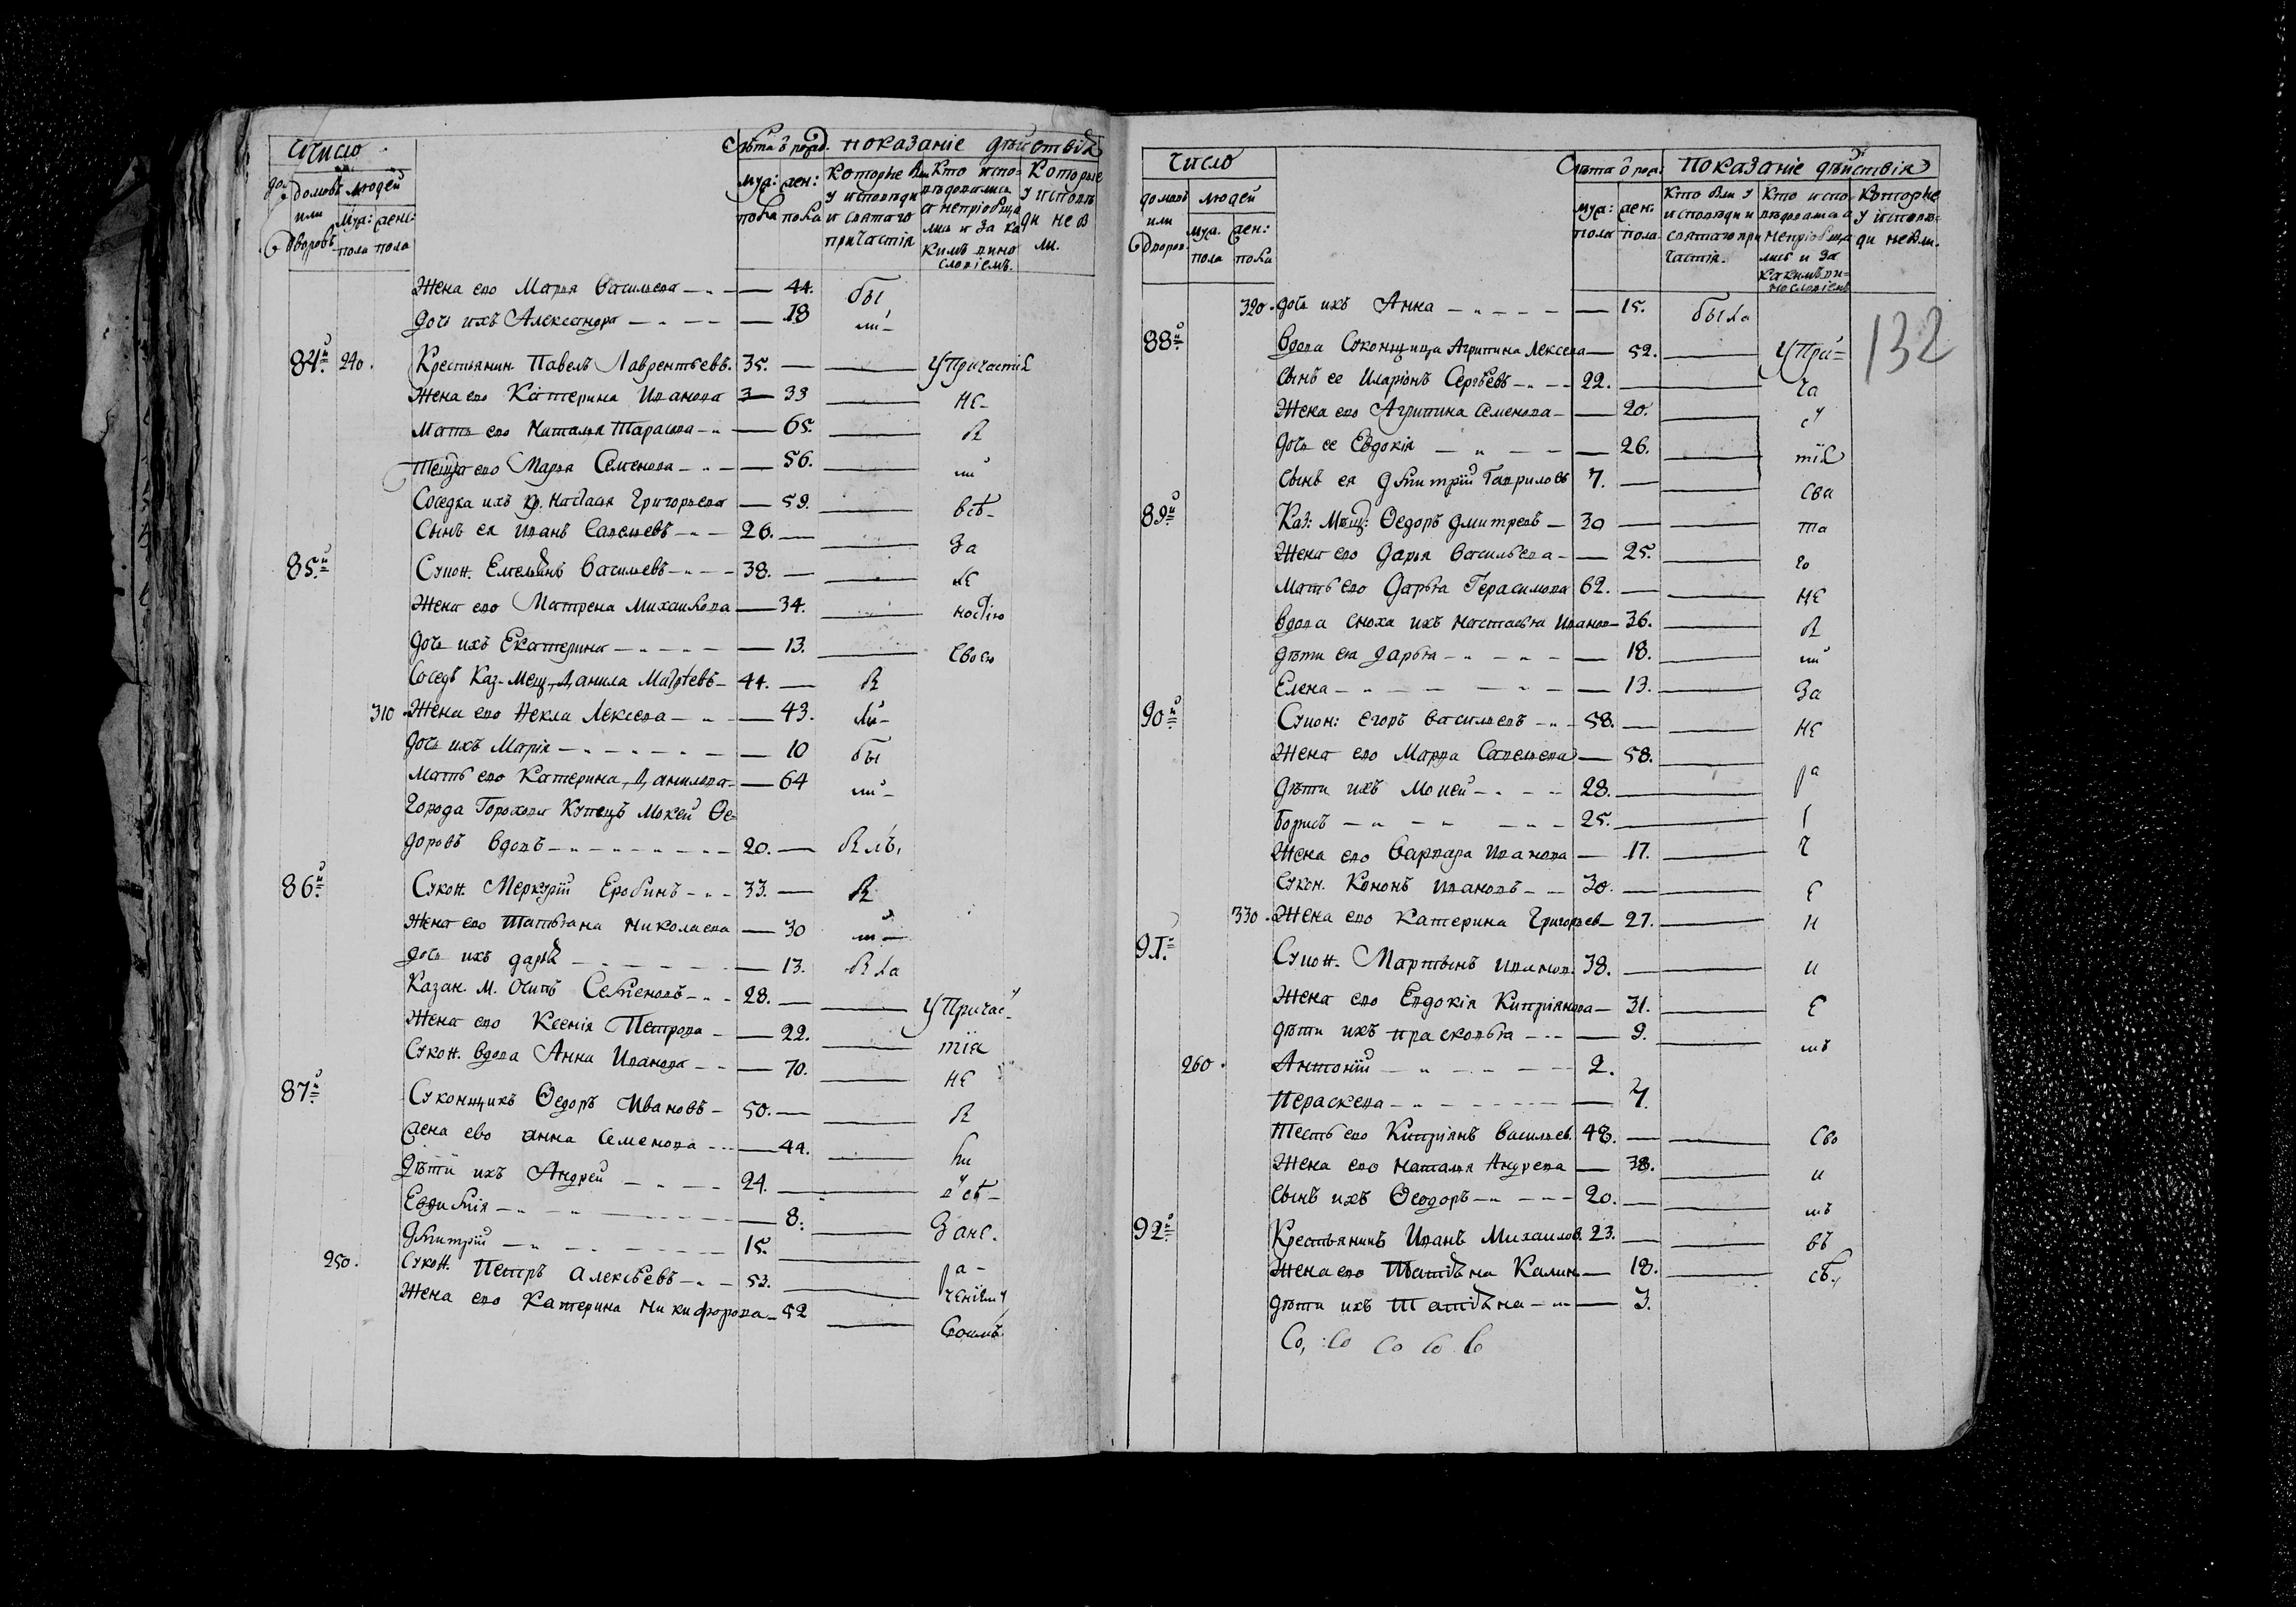 Число
Лѣта ѿ рожд. показаніе дѣйствія
домовъ или дворовъ
людей
муж: пола
жен: пола
муж: пола
жен: пола
Которые были у исповѣди и святаго причастія
Кто исповѣдовались а непріобщались и за какимъ винословіемъ.
Которые у исповѣди не были.
Жена его Марья Васильева — 44. бы
дочь ихъ Александра — 18 ли-
84й 240. Крестьянин. Павелъ Лаврентьевъ. 35. — У Причастія
Жена его Катерина Иванова — 33 не-
Мать его Наталья Тарасова — 65. бы
Теща его Марья Семенова — 56. ли
Соседка ихъ кр. Настасья Григорьева — 59. всѣ-
Сынъ ея Иванъ Савельевъ — 26. — за
85й Сукон. Емельянъ Васильевъ — 38. —
Жена его Матрена Михаилова — 34. ностію
дочь ихъ Екатерина — 13. своею
Соседъ Каз. Мещ. Данила Матвѣевъ — 44. — бы
310 Жена его Фекла Лексеева — 43. ли-
дочь ихъ Марія — 10 бы
Мать его Катерина Данилова — 64 ли-
Города Горохова Купецъ Мокей Ѳе-
доровъ вдовъ — 20. — былъ,
86й Сукон. Меркурій — 33. — бы
Жена его Татьяна Николаева — 30 ли
дочь ихъ дарья — 13. была
Казан. М. Осипъ Семеновъ — 28. — У Причас-
Жена его Ксенія Петрова — 22. тія
Сукон. вдова Анна Иванова — 70. не
87й Суконщикъ Ѳедоръ Ивановъ — 50. — бы
жена ево анна Семенова — 44. ли
дѣти ихъ Андрей — 24. всѣ-
8. за нс.
дмитрій — 15. ра-
250. Сукон. Петръ Алексѣевъ — 53. ченіем
Жена его Катерина Никифорова — 52 своимъ.
Число
Лѣта ѿ рож: показаніе дѣйствія
домовъ или дворов.
людей
муж. пола
жен: пола
муж: пола
жен. пола.
Кто были у исповѣди и святаго причастія.
Кто исповѣдовались а непріобщались и за какимъ винословіемъ
Которые у исповѣди не были.
320. дочь ихъ Анна — 15. была
132
88й вдова Суконщица Агрипина Лексеева — 52. У При-
Сынъ ее Иларіонъ Сергѣевъ — 22. ча
Жена его Агрипина Семенова — 20. с
дочь ее Евдокія — 26. тія
Сынъ ея Дмитрій Гавриловъ 7. — свя
89й Каз: Мѣщ: Ѳедоръ Дмитреевъ — 30 — та
Жена его Дарья Васильева — 25. го
Мать его Дарья Герасимова 62. — не
вдова сноха ихъ Настасья Иванов — 36. бы
дѣти ея дарья — 18. ли
Елена — 13. за
90й Сукон: Егоръ Васильевъ — 58. — не
Жена его Марѳа Савельева — 58. ра
Дѣти ихъ Мокей — 28.
Борисъ — 25.
Жена его Варвара Иванова — 17. ч
Сукон. Кононъ Ивановъ — 30. — е
330. Жена его Катерина Григорьев — 27. н
91й Сукон. Мартынъ Иванов. 38. — и
Жена его Евдокія Кипріянова — 31. е
дѣти ихъ прасковья — 9. мъ
260. Антоній — 2.
Параскева — 4.
Тесть его Кипріянъ Васильев. 48. — сво
Жена его Наталья Андреева — 38. и
Сынъ ихъ Ѳеодоръ — 20. — мъ
92й Крестьянинъ Иванъ Михаилов. 23. — въ
Жена его Татьяна Калин — 18. сѣ,
дѣти ихъ Татьяна — 3.
Со, Со Со Со Со